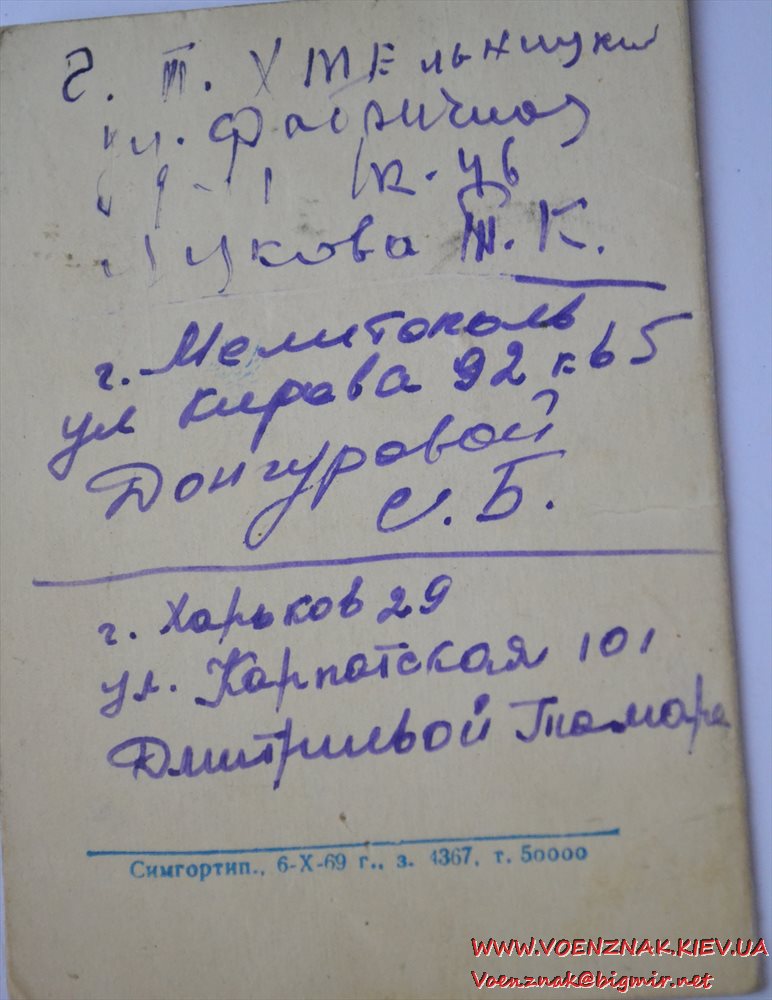 г. т. Хмельницки
ул. Фабричная
к. 46
Т. К.
г. Мелитополь
ул Кирова 92 кв 5
Донгуровой
С. Б.
г. Харьков 29
ул. Карпатская 101
Дмитриевой Тамара
Симгортип., 6-X-69 г., з. 4367, т. 50000
WWW.VOENZNAK.KIEV.UA
Voenznak@bigmir.net